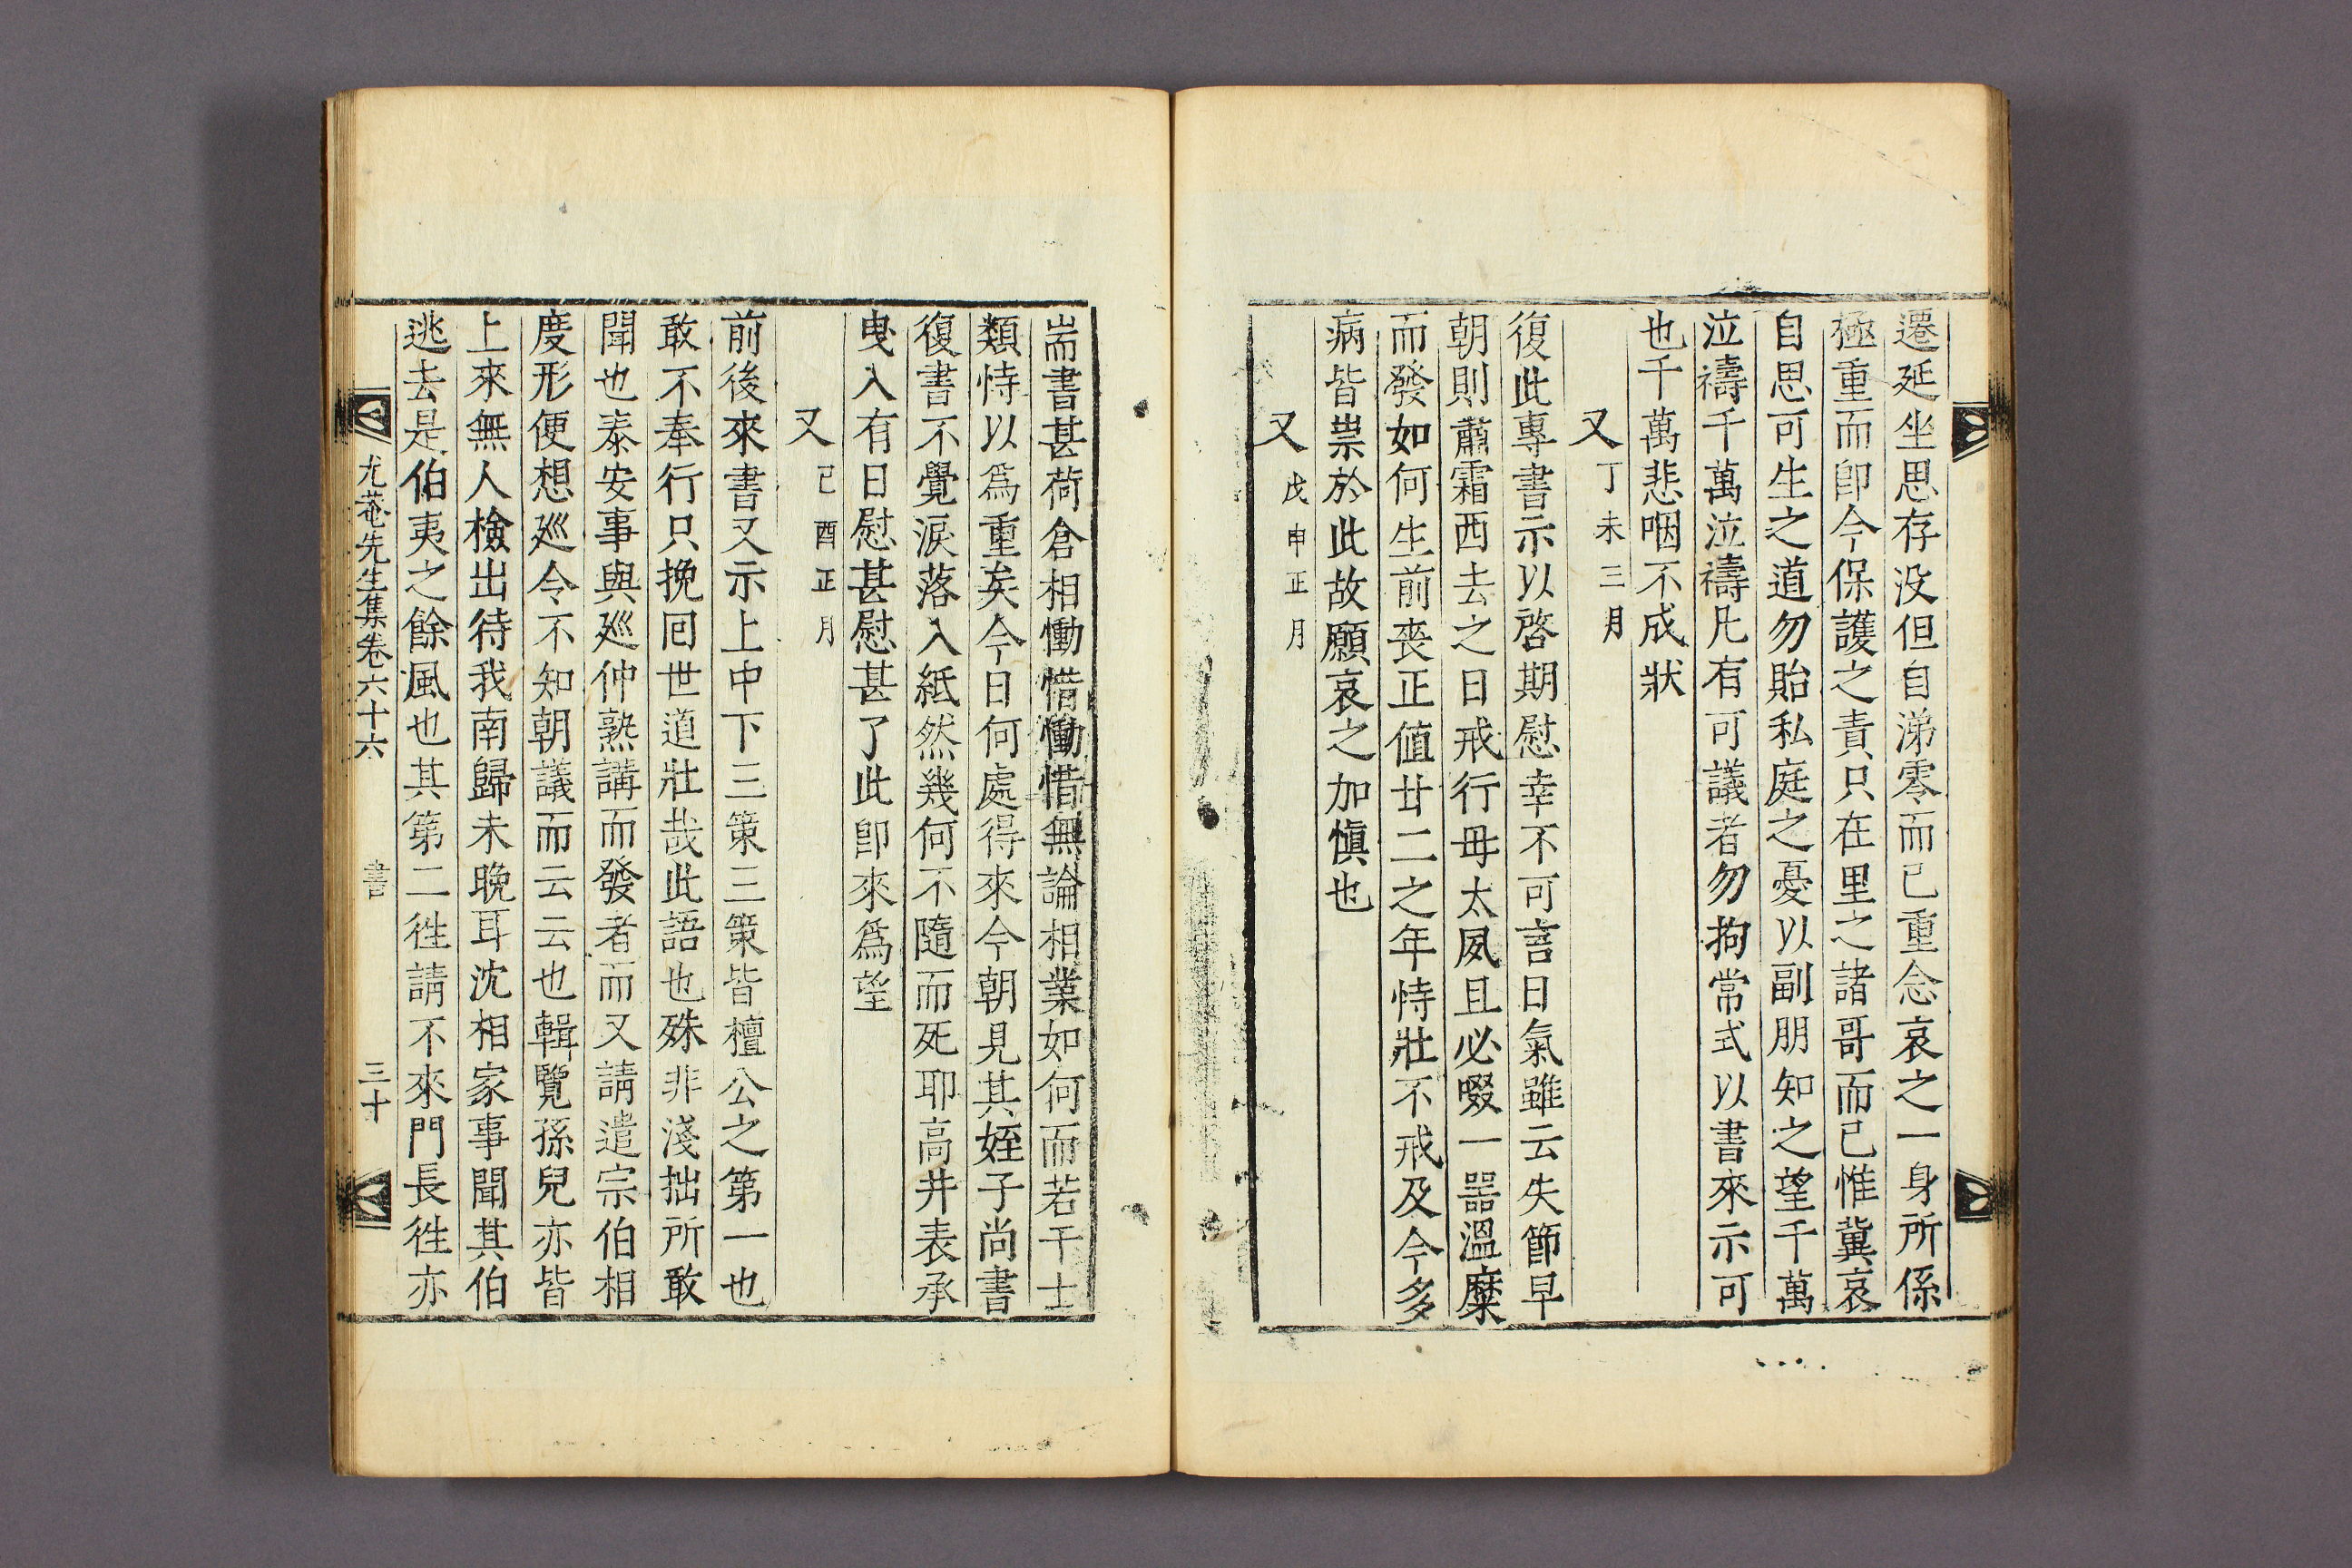 遷延坐思存沒但自涕零而已重念哀之一身所係
極重而卽今保護之責只在里之諸哥而已惟冀哀
自思可生之道勿貽私庭之憂以副朋知之望千萬
泣禱千萬泣禱凡有可議者勿拘常式以書來示可
也千萬悲咽不成狀
又丁未三月
復此專書示以啓期慰幸不可言日氣雖云失節早
朝則肅霜西去之日戒行毋太夙且必啜一器溫糜
而發如何生前喪正値廿二之年恃壯不戒及今多
病皆祟於此故願哀之加愼也
又戊申正月
耑書甚荷倉相慟惜慟惜無論相業如何而若干士
類恃以爲重矣今日何處得來今朝見其姪子尙書
復書不覺淚落入紙然幾何不隨而死耶高井表承
曳入有日慰甚慰甚了此卽來爲望
又己酉正月
前後來書又示上中下三策三策皆檀公之第一也
敢不奉行只挽回世道壯哉此語也殊非淺拙所敢
聞也泰安事與巡仲熟講而發者而又請遣宗伯相
度形便想巡令不知朝議而云云也輯覽孫兒亦皆
上來無人檢出待我南歸未晩耳沈相家事聞其伯
逃去是伯夷之餘風也其第二徃請不來門長徃亦
尤菴先生集卷六十六 書 三十